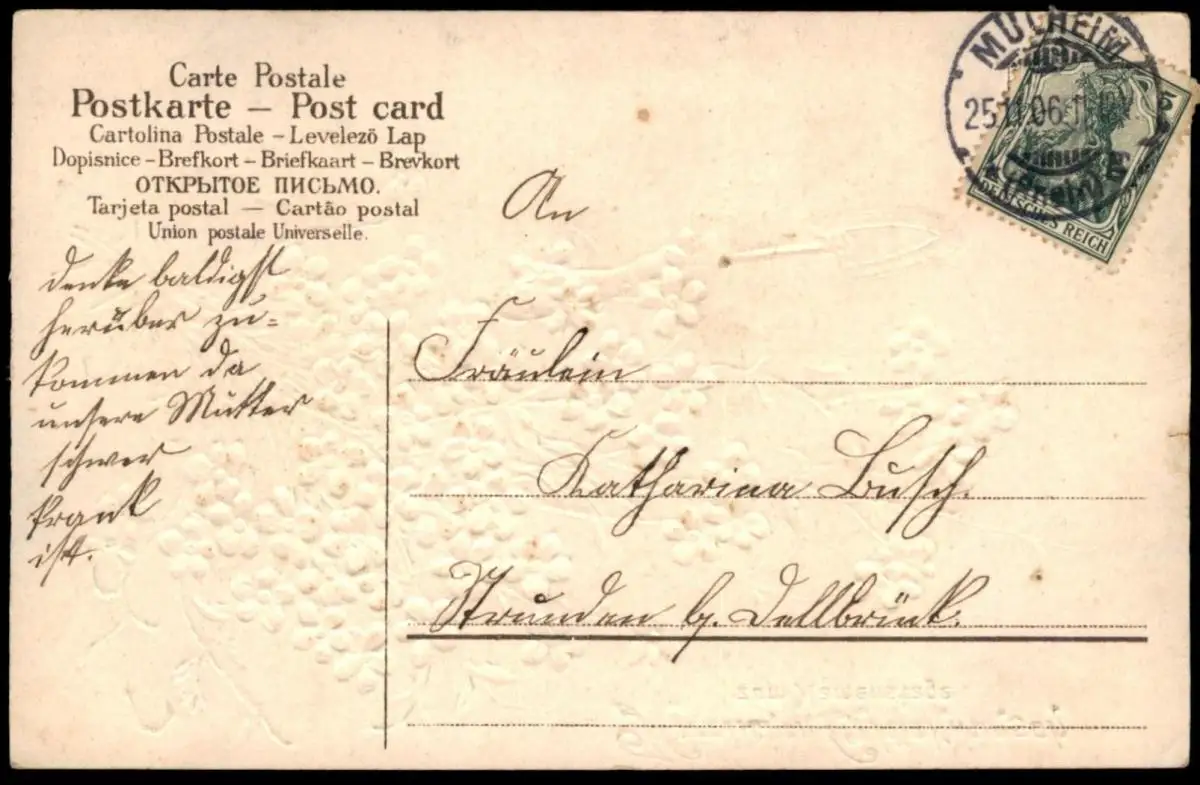 Carte Postale
Postkarte — Post card
Cartolina Postale – Levelező Lap
Dopisnice – Brefkort – Briefkaart – Brevkort
ОТКРЫТОЕ ПИСЬМО.
Tarjeta postal — Cartão postal
Union postale Universelle.
denke baldigst
herüber zu=
kommen da
unsere Mutter
schwer
krank
ist.
An
Fräulein
Katharina Busch.
Strunden b. Dellbrück.
MÜLHEIM
25.11.06
(Rhein)
DEUTSCHES REICH
5